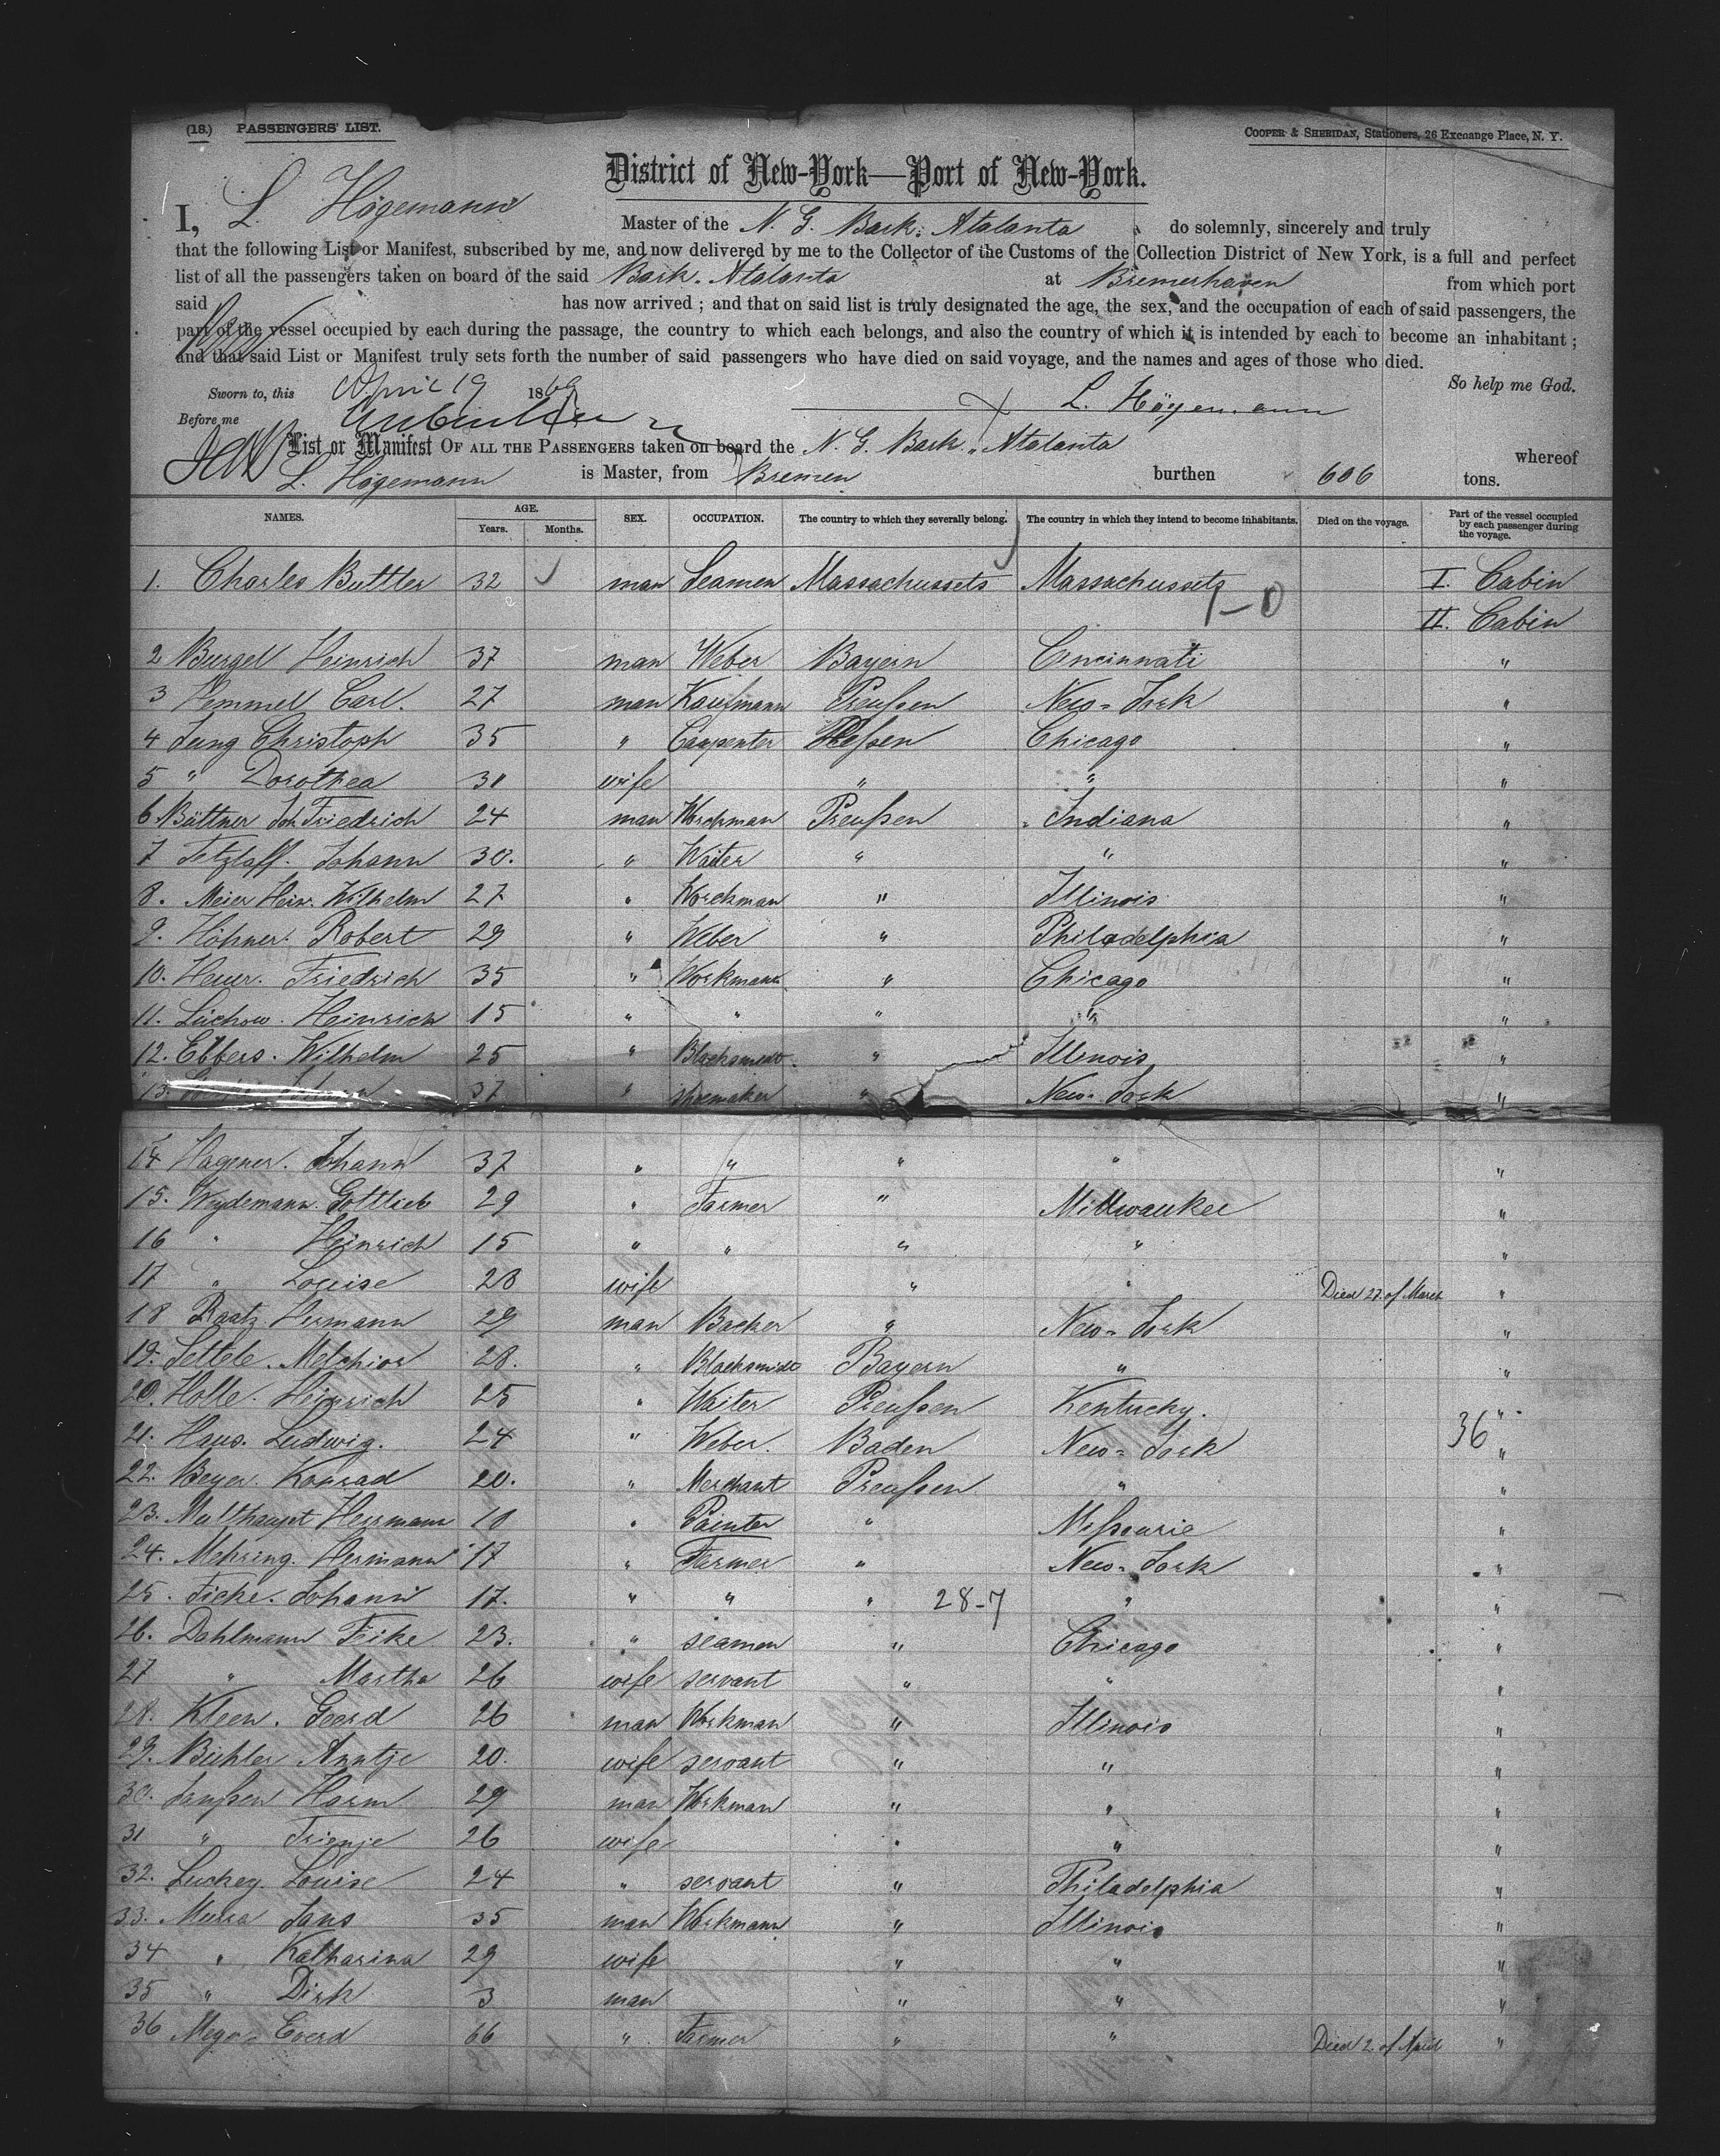 (18.) PASSENGERS' LIST.
COOPER & SHERIDAN, Stationers, 26 Exchange Place, N. Y.
District of New-York—Port of New-York.
I, L. Högemann Master of the N. G. Bark. Atalanta do solemnly, sincerely and truly
that the following List or Manifest, subscribed by me, and now delivered by me to the Collector of the Customs of the Collection District of New York, is a full and perfect
list of all the passengers taken on board of the said Bark. Atalanta at Bremerhaven from which port
said has now arrived ; and that on said list is truly designated the age, the sex, and the occupation of each of said passengers, the
part of the vessel occupied by each during the passage, the country to which each belongs, and also the country of which it is intended by each to become an inhabitant ;
and that said List or Manifest truly sets forth the number of said passengers who have died on said voyage, and the names and ages of those who died.
So help me God.
Sworn to, this April 19 1869
L. Högemann
Before me
List or Manifest OF ALL THE PASSENGERS taken on board the N. G. Bark. „ Atalanta whereof
L. Högemann is Master, from Bremen burthen 606 tons.
NAMES. AGE. Years. Months. SEX. OCCUPATION. The country to which they severally belong. The country in which they intend to become inhabitants. Died on the voyage. Part of the vessel occupied by each passenger during the voyage.
1. Charles Buttler 32 man Seamen Massachussets Massachussets I. Cabin
1-0
II. Cabin
2 Burgel Heinrich 37 man Weber Bayern Cincinnati "
3 Hemmel Carl. 27 man Kaufmann Preußen New-York "
4 Jung Christoph 35 " Carpenter Heßen Chicago "
5 " Dorothea 31 wife " " "
6 Büttner Joh Friedrich 24 man Workman Preußen Indiana "
7 Tetzlaff. Johann 30. " Waiter " " "
8. Meier Heinr. Wilhelm 27 " Workman " Illinois "
9. Höhner. Robert 29 " Weber " Philadelphia "
10. Heuer. Friedrich 35 " Workmann " Chicago "
11. Lüchow. Heinrich 15 " " " " "
12. Ebbers. Wilhelm 25 " Blacksmidt " Illinois "
13. 37 " Shoemaker " New-York "
14 Hagener. Johann 37 " " " " "
15. Weydemann. Gottlieb 29 " Farmer " Millwaukee "
16 " Heinrich 15 " " " " "
17 " Louise 28 wife " " Died 27. of March "
18 Raatz Hermann 29 man Backer " New-York "
19. Settele. Melchior 28. " Blacksmidt Bayern " "
20. Holle. Heinrich 25 " Waiter Preußen Kentucky. "
21. Haus. Ludwig. 24 " Weber. Baden New-York 36 "
22. Beyer. Konrad 20. " Merchant Preußen " "
23. Multhaupt Hermann 18 " Painter " Mißourie "
24. Mehring. Hermann 17 " Farmer " New-York "
25. Ficke. Johann 17. " " " 28-7 " "
26. Dahlmann Feike 23. " seamen " Chicago "
27 " Martha 26 wife servant " " "
28. Kleen. Geerd 26 man Workman " Illinois "
29. Bühler Anntje 20. wife servant " " "
30. Janßen Harm 29 man Workman " " "
31 " Trienje 26 wife " " "
32. Luckey. Louise 24 " servant " Philadelphia "
33. Mursa Jans 35 man Workmann " Illinois "
34 " Katharina 29 wife " " "
35 " Dirk 3 man " " "
36 Meyer Everd 66 " Farmer " " Died 2. of April "